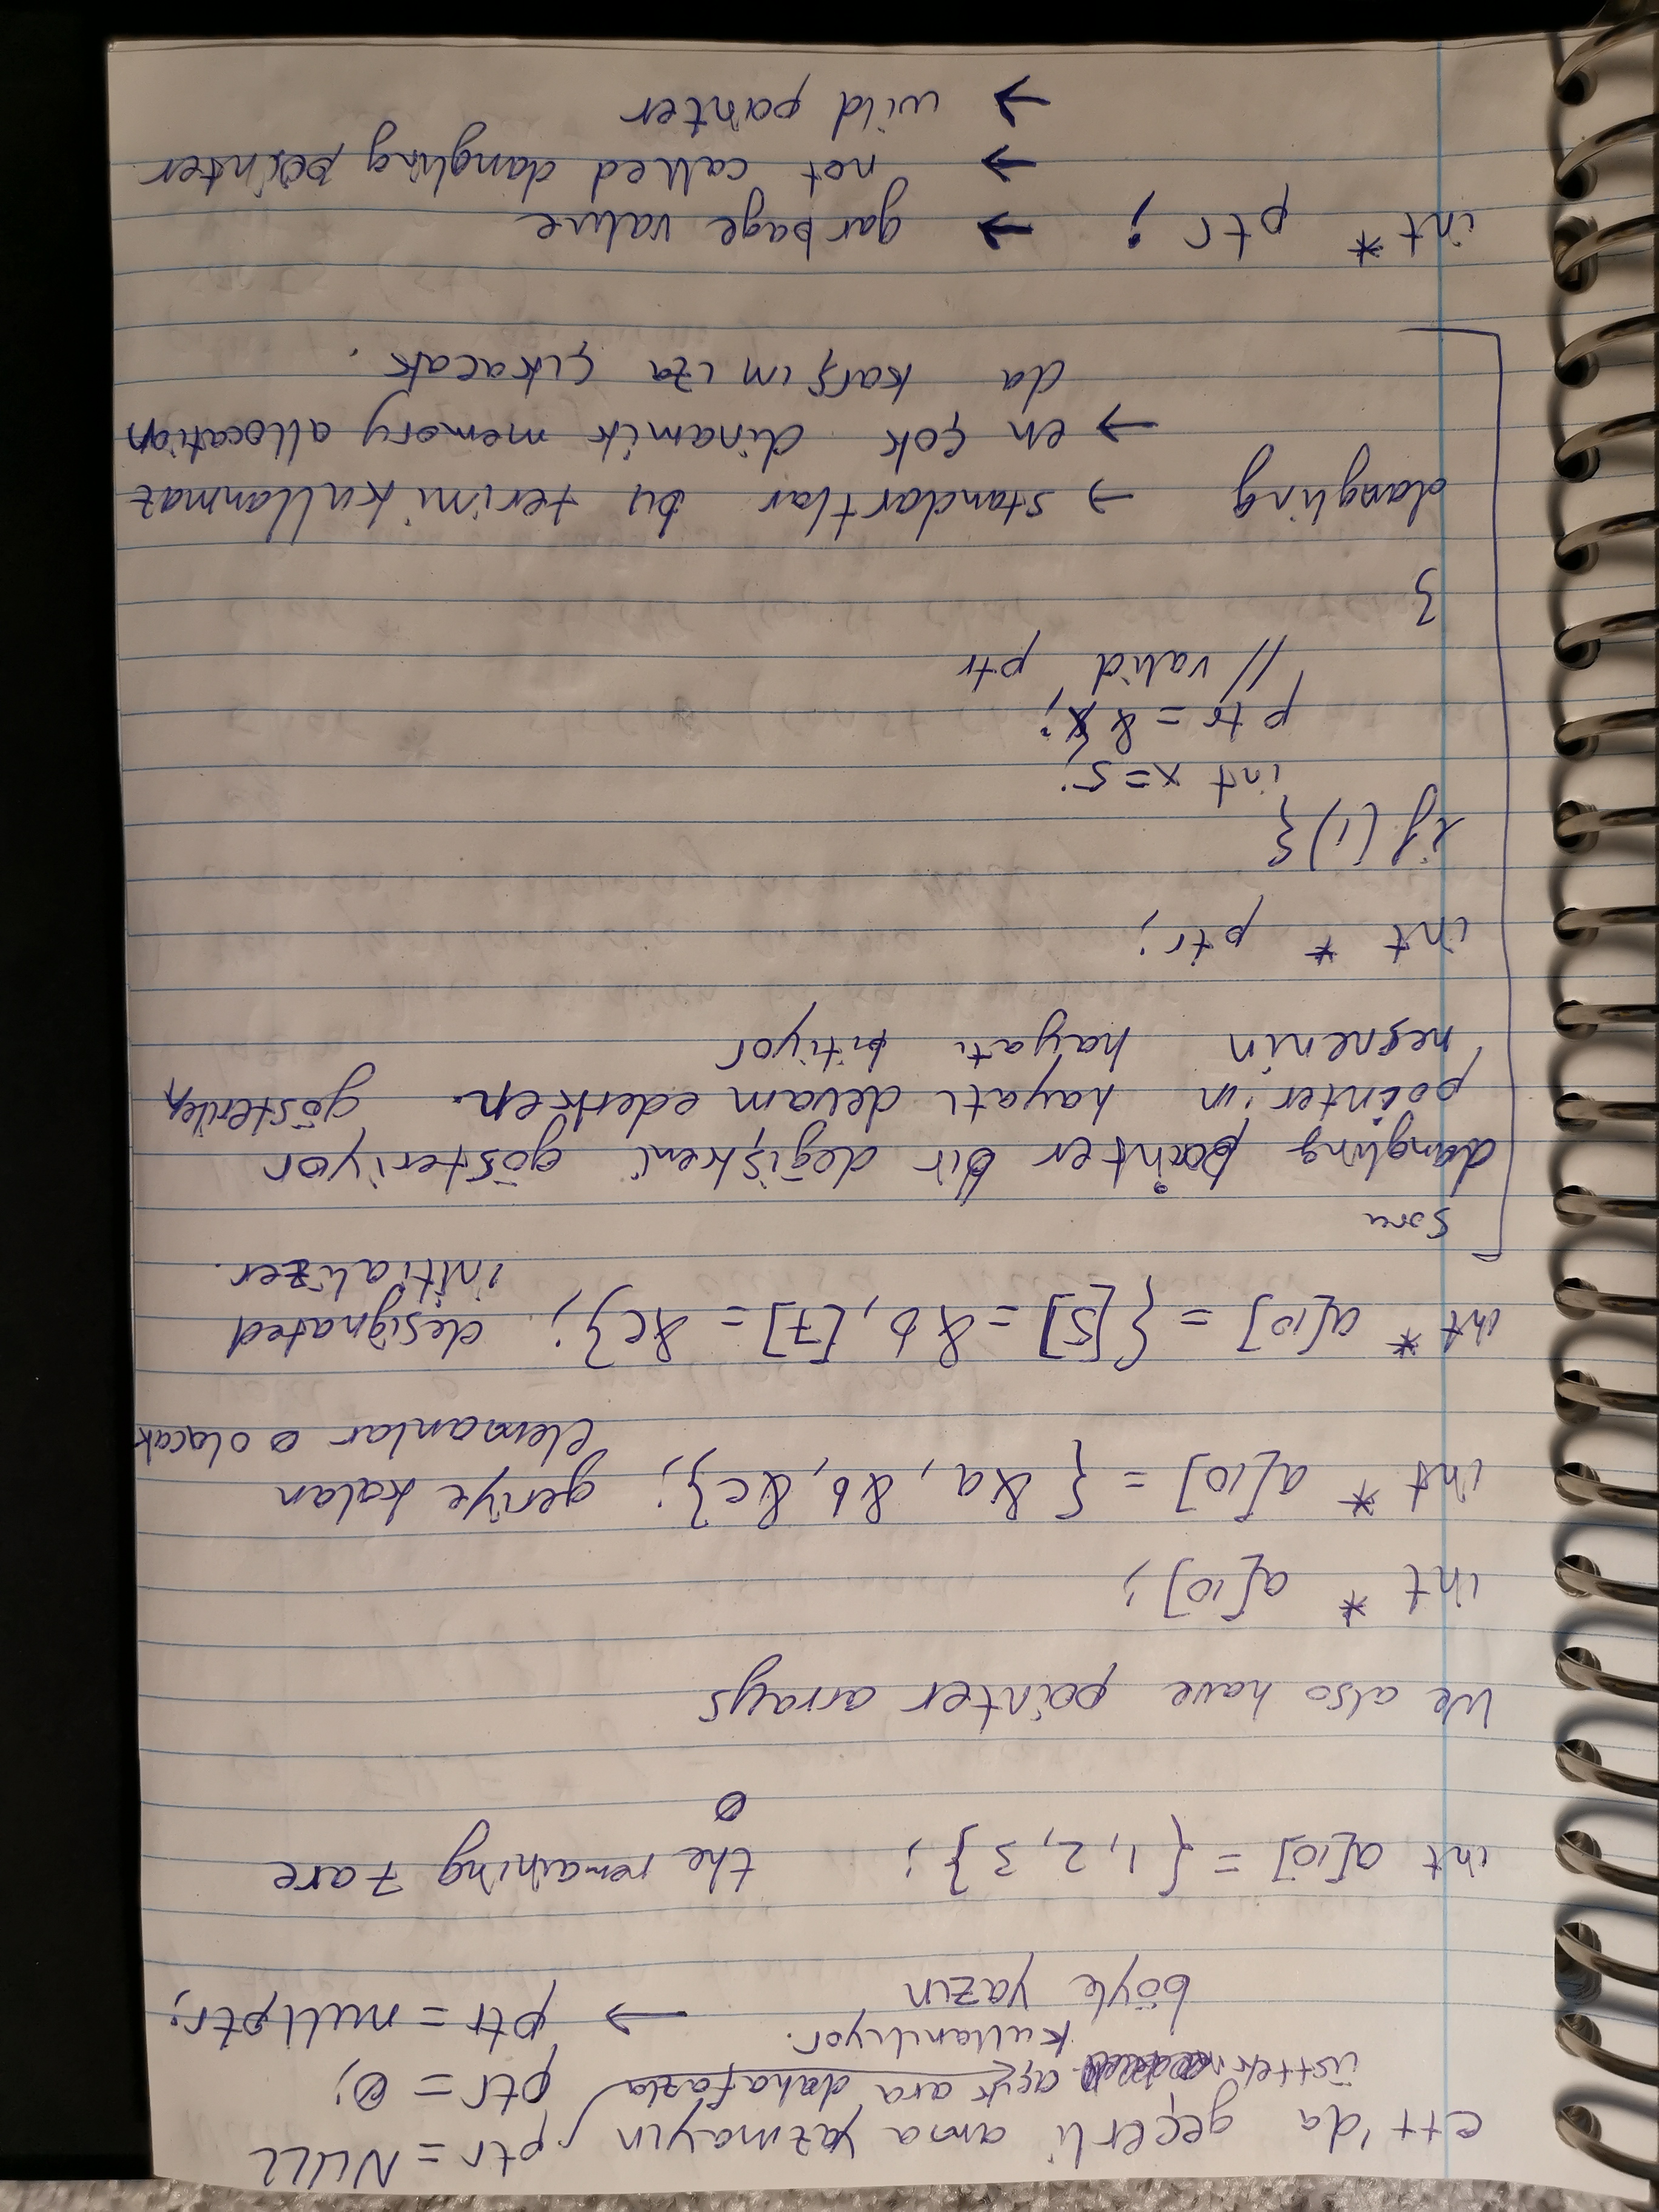 c++'da geçerli ama yazmayın ptr = NULL
üstteki açık ara daha fazla ptr = 0;
kullanılıyor.
böyle yazın → ptr = nullptr;
int a[10] = { 1, 2, 3 } ; the remaining 7 are
0
We also have pointer arrays
int * a[10] ;
int * a[10] = { &a, &b, &c}; geriye kalan
elemanlar 0 olacak
int * a[10] = {[5] = &b, [7] = &c}; designated
initializer.
Soru
dangling pointer bir değişkeni gösteriyor
pointer'ın hayatı devam ederken. gösterilen
neşnenin hayatı bitiyor
int * ptr;
if (1) {
int x = 5;
ptr = &x;
// valid ptr
}
dangling → standartlar bu terimi kullanmaz
→ en çok dinamik memory allocation
da karşımıza çıkacak.
int * ptr ; → garbage value
→ not called dangling pointer
→ wild pointer